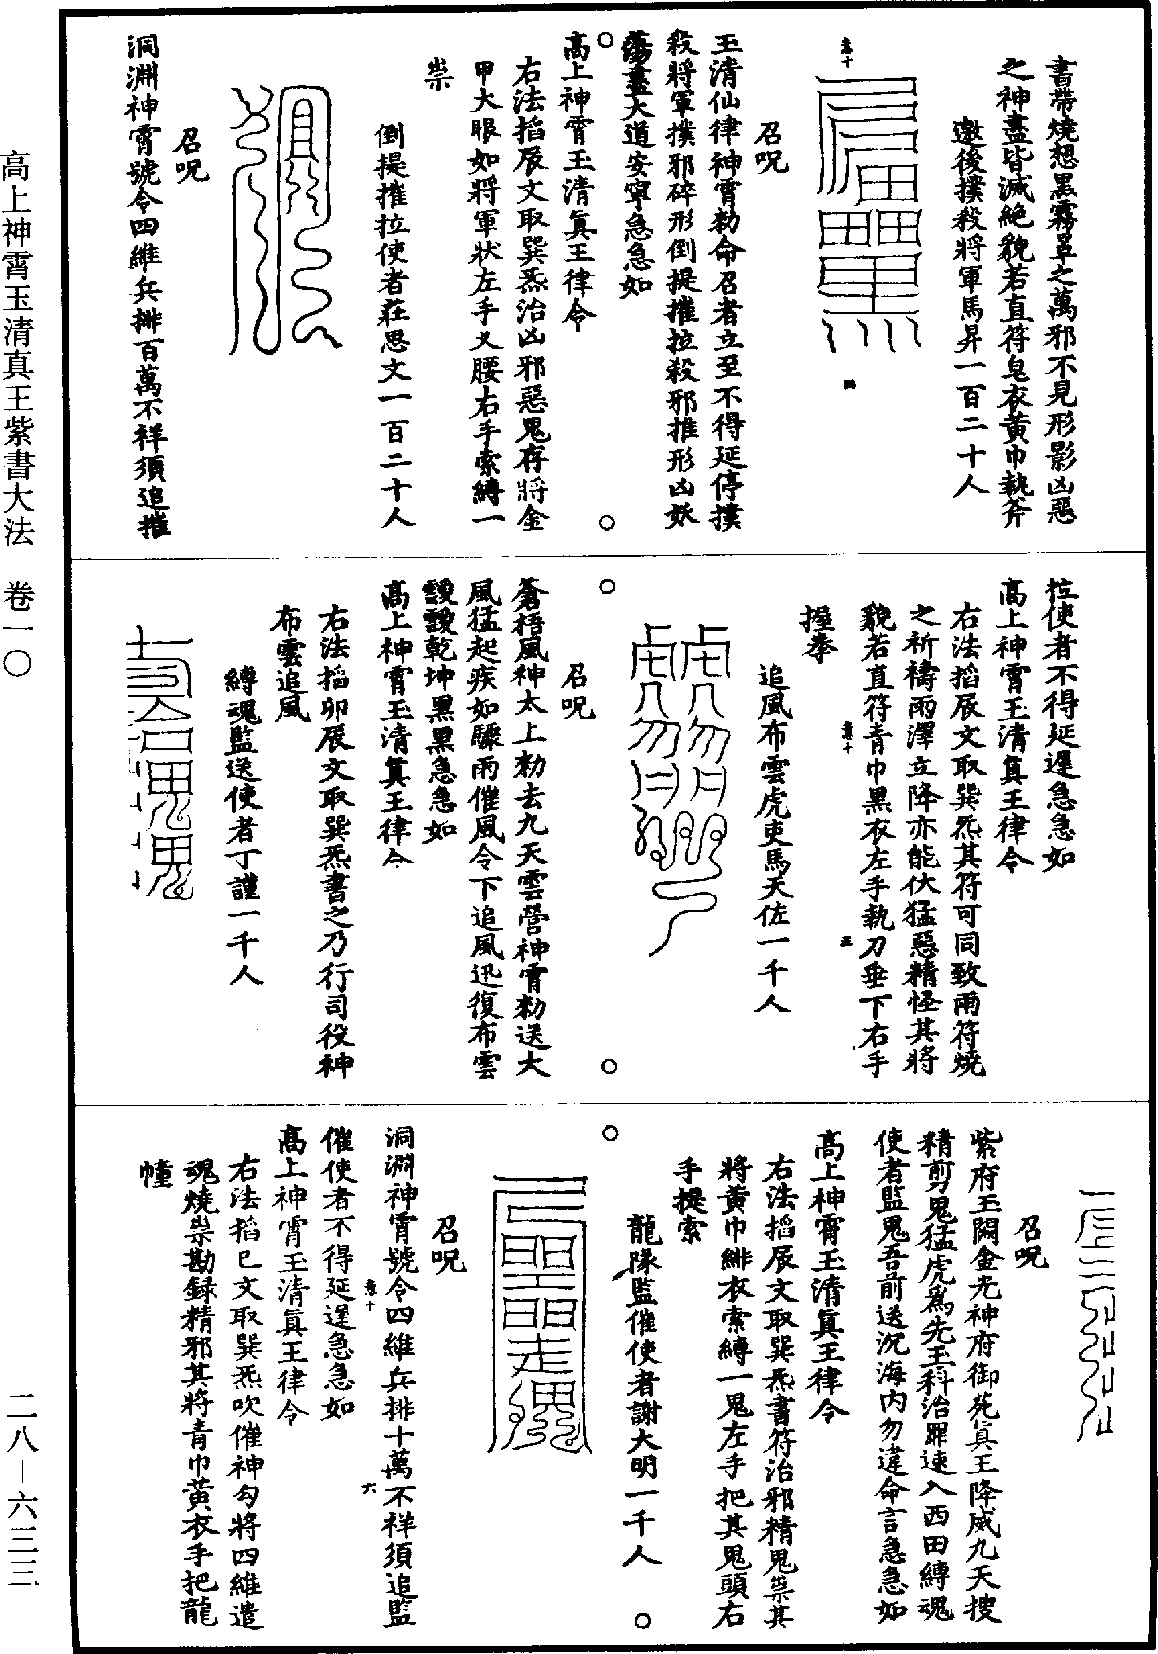 書帶燒想黑霧罩之萬邪不見形影凶惡
之神盡皆滅絕貌若直符皂衣黃巾執斧
邀後撲殺將軍馬昇一百二十人
卷十
四
召呪
玉清仙律神霄勑命召者立至不得延停撲
殺將軍撲邪碎形倒提摧拉殺邪推形凶妖
蕩盡大道安寧急急如
高上神霄玉清眞王律令
右法掐辰文取巽炁治凶邪惡鬼存將金
甲大眼如將軍狀左手叉腰右手索縛一
祟
倒提摧拉使者莊思文一百二十人
召呪
洞淵神霄號令四維兵排百萬不祥須追摧
拉使者不得延遲急急如
高上神霄玉清眞王律令
右法掐辰文取巽炁其符可同致雨符燒
之祈禱雨澤立降亦能伏猛惡精怪其將
貌若直符青巾黑衣左手執刀垂下右手
卷十
五
握拳
追風布雲虎吏馬天佐一千人
召呪
蒼梧風神太上勑去九天雲營神霄勑送大
風猛起疾如驟雨催風令下追風迅復布雲
靉靉乾坤黑黑急急如
高上神霄玉清眞王律令
右法掐卯辰文取巽炁書之乃行司役神
布雲追風
縛魂監送使者丁謹一千人
召呪
紫府玉闕金光神府御苑眞王降威九天搜
精剪鬼猛虎爲先玉科治罪速入西田縛魂
使者監鬼吾前送沉海内勿違命言急急如
高上神霄玉清眞王律令
右法掐辰文取巽炁書符治邪精鬼祟其
將黃巾緋衣索縛一鬼左手把其鬼頭右
手提索
龍隊監催使者謝大明一千人
召呪
洞淵神霄號令四維兵排十萬不祥須追監
卷十
六
催使者不得延遲急急如
高上神霄玉清眞王律令
右法掐巳文取巽炁吹催神勾將四維遣
魂燒祟勘錄精邪其將青巾黃衣手把龍
幢
高上神霄玉清真王紫書大法　卷一〇
二八—六三三